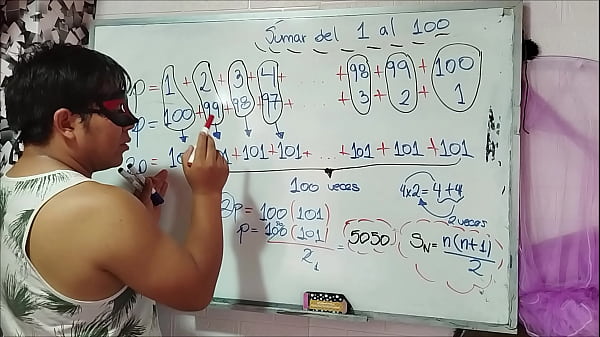 Sumar del 1 al 100
p = 1 + 2 + 3 + 4 + + 98 + 99 + 100
p = 100 + 99 + 98 + 97 + + 3 + 2 + 1
2p = 101 + 101 + 101 + 101 + ... + 101 + 101 + 101
100 veces
4x2 = 4 + 4
2 veces
2p = 100 (101)
p = 100 (101) / 2 = 5050
S_N = n(n+1) / 2